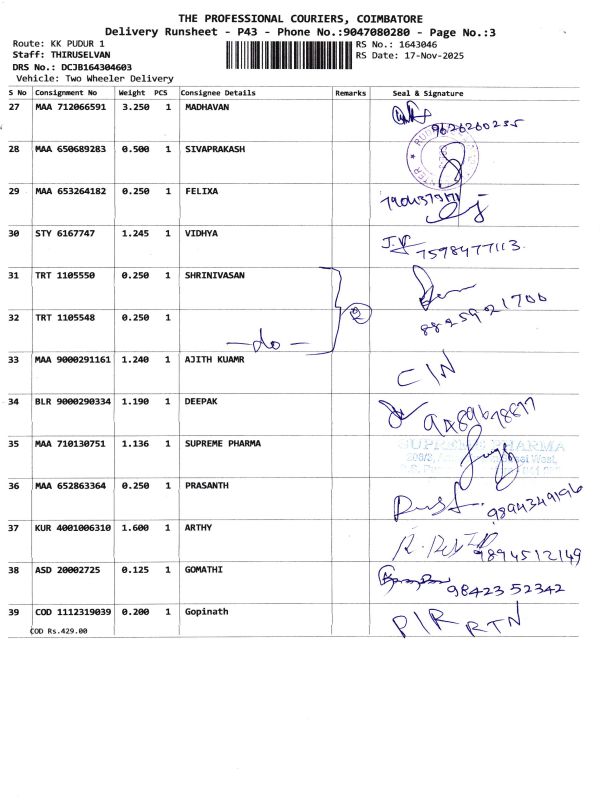 THE PROFESSIONAL COURIERS, COIMBATORE
Delivery Runsheet - P43 - Phone No.:9047080280 - Page No.:3
Route: KK PUDUR 1 RS No.: 1643046
Staff: THIRUSELVAN RS Date: 17-Nov-2025
DRS No.: DCJB164304603
Vehicle: Two Wheeler Delivery
S No Consignment No Weight PCS Consignee Details Remarks Seal & Signature
27 MAA 712066591 3.250 1 MADHAVAN 9626260235
28 MAA 650689283 0.500 1 SIVAPRAKASH
29 MAA 653264182 0.250 1 FELIXA
30 STY 6167747 1.245 1 VIDHYA 7598477113
31 TRT 1105550 0.250 1 SHRINIVASAN 2 8825921700
32 TRT 1105548 0.250 1 -do-
33 MAA 9000291161 1.240 1 AJITH KUAMR C/N
34 BLR 9000290334 1.190 1 DEEPAK
35 MAA 710130751 1.136 1 SUPREME PHARMA SUPREME PHARMA
36 MAA 652863364 0.250 1 PRASANTH 9894349196
37 KUR 4001006310 1.600 1 ARTHY 9894512149
38 ASD 20002725 0.125 1 GOMATHI 9842352342
39 COD 1112319039 0.200 1 Gopinath P/R RTN
COD Rs.429.00